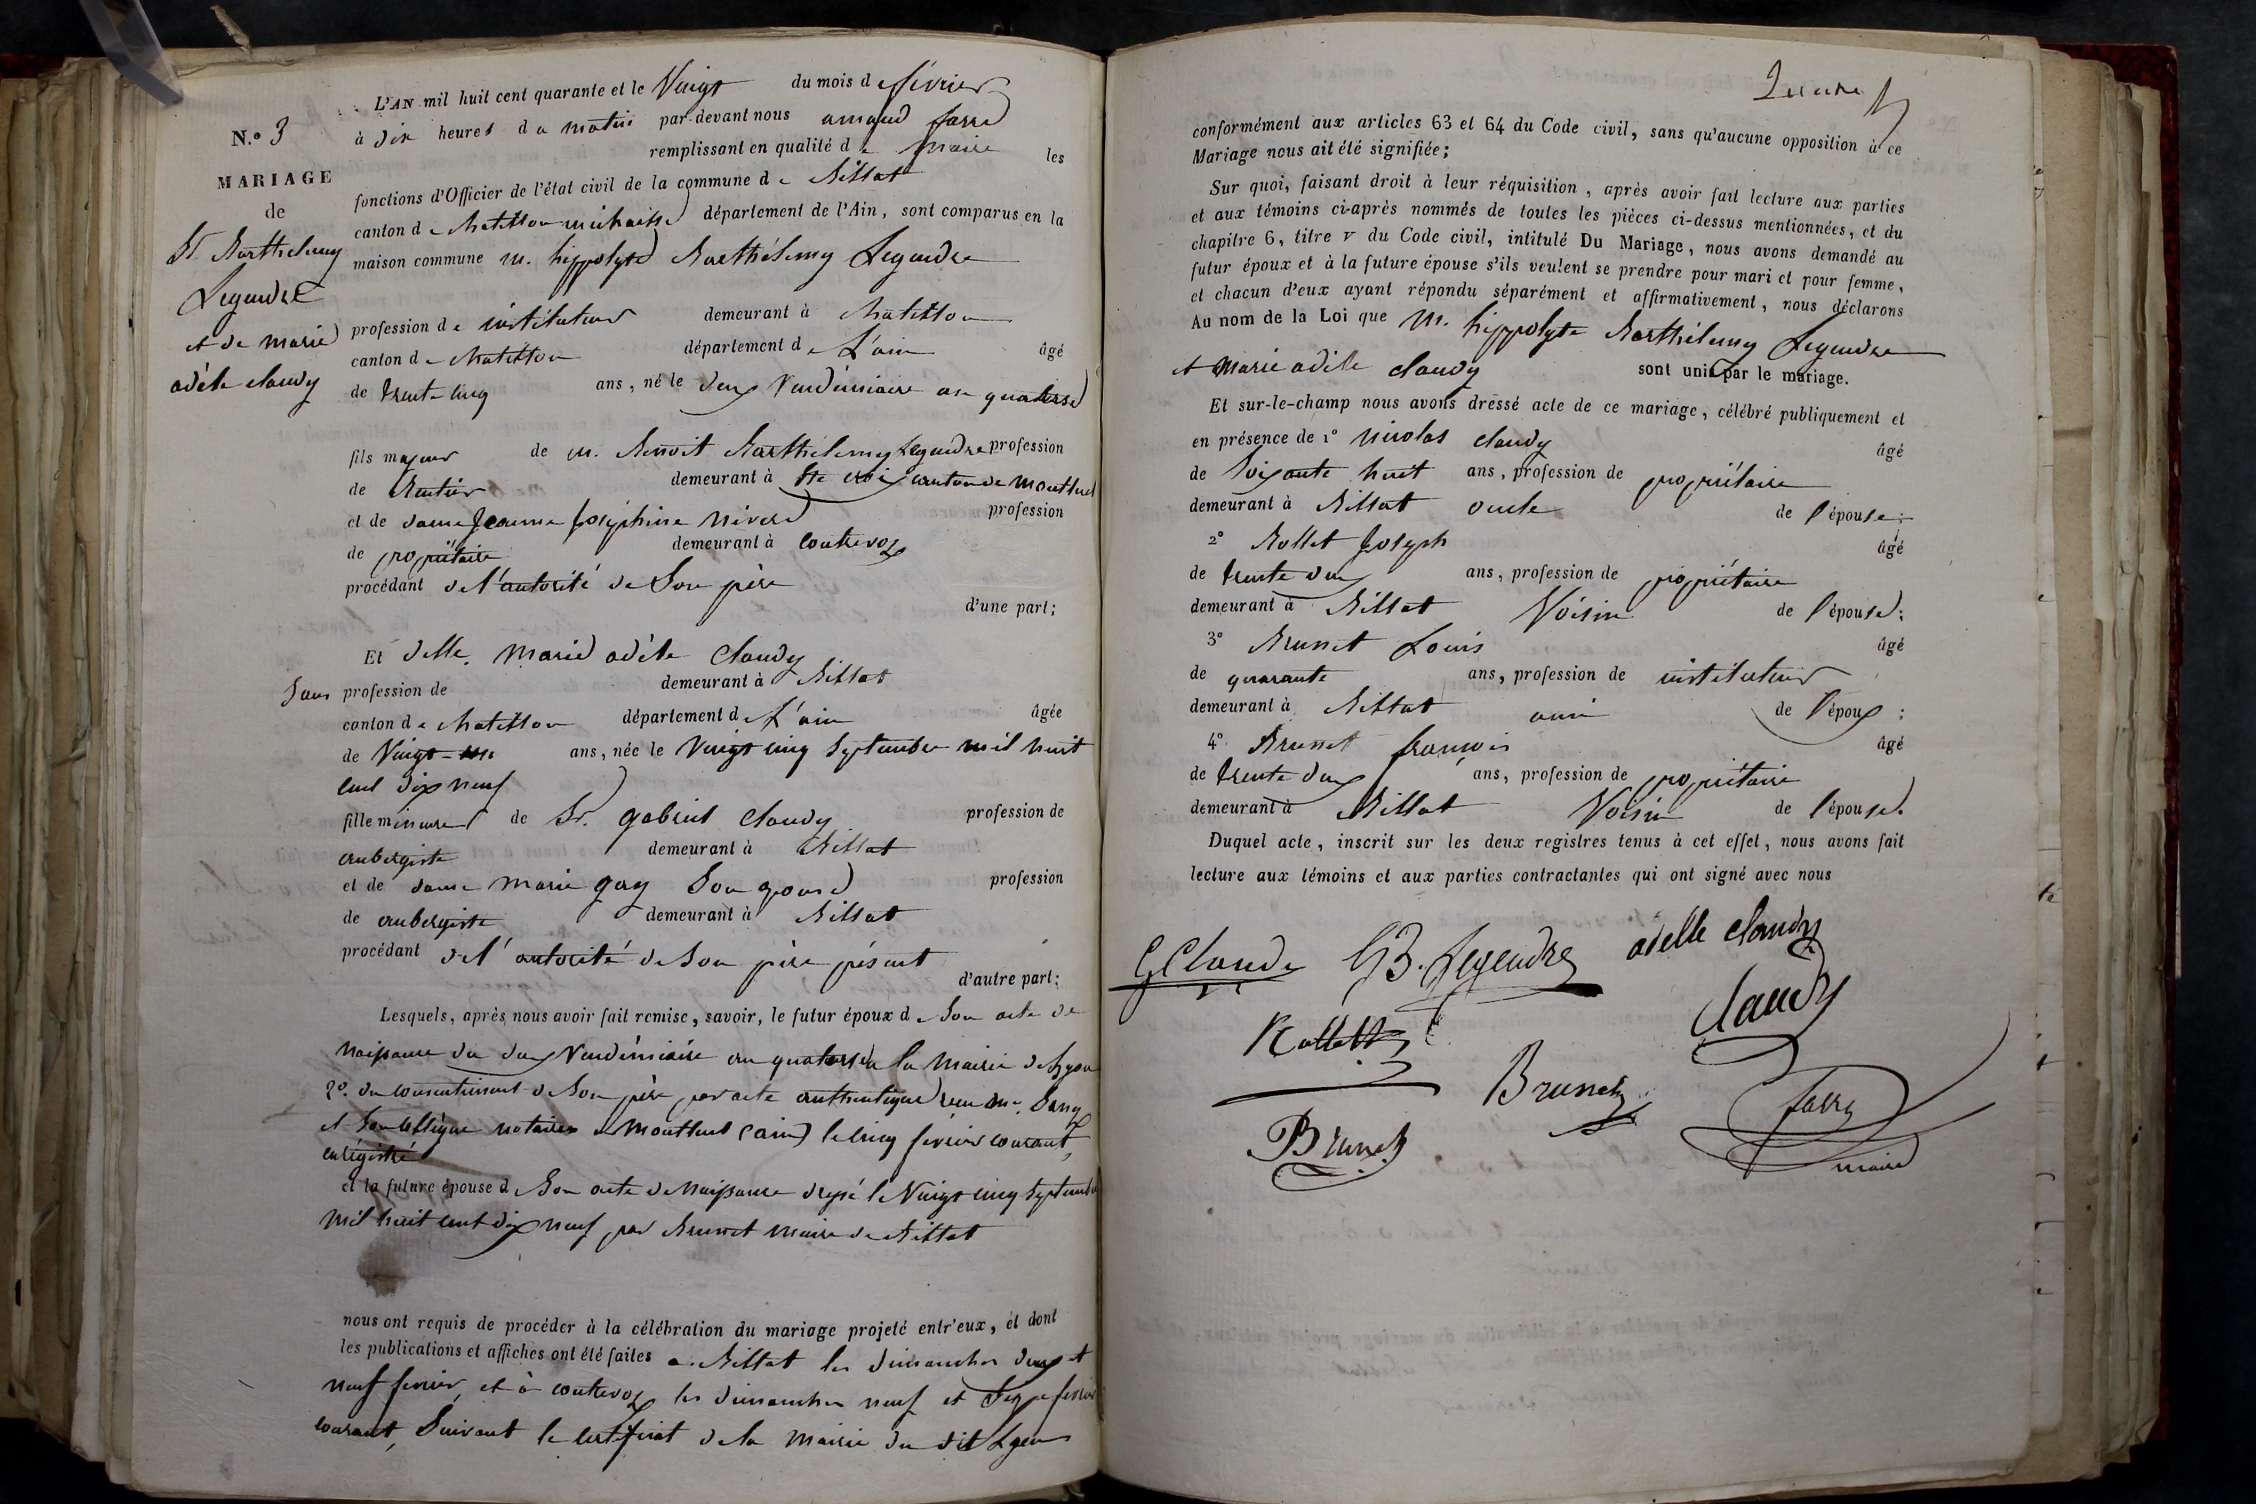 N.º 3
MARIAGE
de
Sr. Barthélemy
Legendre
et de marie
adèle claudy
L'AN mil huit cent quarante et le Vingt du mois de février
à dix heures du matin par-devant nous armand favre
remplissant en qualité de maire les
fonctions d'Officier de l'état civil de la commune de Billiat
canton de Chatillon michaille département de l'Ain, sont comparus en la
maison commune M. hippolyte Barthélemy Legendre
profession de instituteur demeurant à Chatillon
canton de Chatillon département de L'ain âgé
de trente cinq ans, né le deux Vendémiaire an quatorze
fils majeur de M. Benoit Barthélemy Legendre profession
de Rentier demeurant à Ste croix canton de Montluel
et de dame Jeanne Joséphine profession
de propriétaire demeurant à contrevoz
procédant de l'autorité de Son père
d'une part;
Et delle. Marie adèle Claudy
Sans profession de demeurant à Billiat
canton de Chatillon département de L'ain âgée
de Vingt-un ans, née le Vingt cinq Septembre mil huit
cent dix neuf
fille mineure de Sr. gabriel Claudy profession de
aubergiste demeurant à Billiat
et de dame marie gay Son épouse profession
de aubergiste demeurant à Billiat
procédant de l'autorité de Son père présent
d'autre part;
Lesquels, après nous avoir fait remise, savoir, le futur époux de Son acte de
Naissance du deux Vendémiaire an quatorze à la Mairie de Lyon
2º. du consentiment de Son père par acte authentique reçu Me.
et Son collègue notaires à Montluel (ain) le cinq février courant,
enregistré
et la future épouse de Son acte de Naissance dressé le Vingt cinq Septembre
mil huit cent dix neuf par Brunet Maire de Billiat
nous ont requis de procéder à la célébration du mariage projeté entr'eux, et dont
les publications et affiches ont été faites à Billiat les dimanches deux et
neuf février, et à contrevoz les dimanches neuf et Seize février
courant, Suivant le certificat de la Mairie du dit Lyeu
conformément aux articles 63 et 64 du Code civil, sans qu'aucune opposition à ce
Mariage nous ait été signifiée;
Sur quoi, faisant droit à leur réquisition, après avoir fait lecture aux parties
et aux témoins ci-après nommés de toutes les pièces ci-dessus mentionnées, et du
chapitre 6, titre v du Code civil, intitulé Du Mariage, nous avons demandé au
futur époux et à la future épouse s'ils veulent se prendre pour mari et pour femme,
et chacun d'eux ayant répondu séparément et affirmativement, nous déclarons
Au nom de la Loi que M. hippolyte Barthélemy Legendre
et Marie adèle claudy sont unis par le mariage.
Et sur-le-champ nous avons dressé acte de ce mariage, célébré publiquement et
en présence de 1º Nicolas claudy âgé
de Soixante huit ans, profession de propriétaire
demeurant à Billiat oncle de l'épouse;
2º Rollet Joseph âgé
de trente deux ans, profession de propriétaire
demeurant à Billiat Voisin de l'épouse;
3º Brunet Louis âgé
de quarante ans, profession de instituteur
demeurant à Billiat ami de l'époux;
4º Brunet françois âgé
de trente deux ans, profession de propriétaire
demeurant à Billiat Voisin de l'épouse.
Duquel acte, inscrit sur les deux registres tenus à cet effet, nous avons fait
lecture aux témoins et aux parties contractantes qui ont signé avec nous
G Claudy HB. Legendre adelle claudy
Claudy
Rollet
Brunet
favre
Brunet
maire